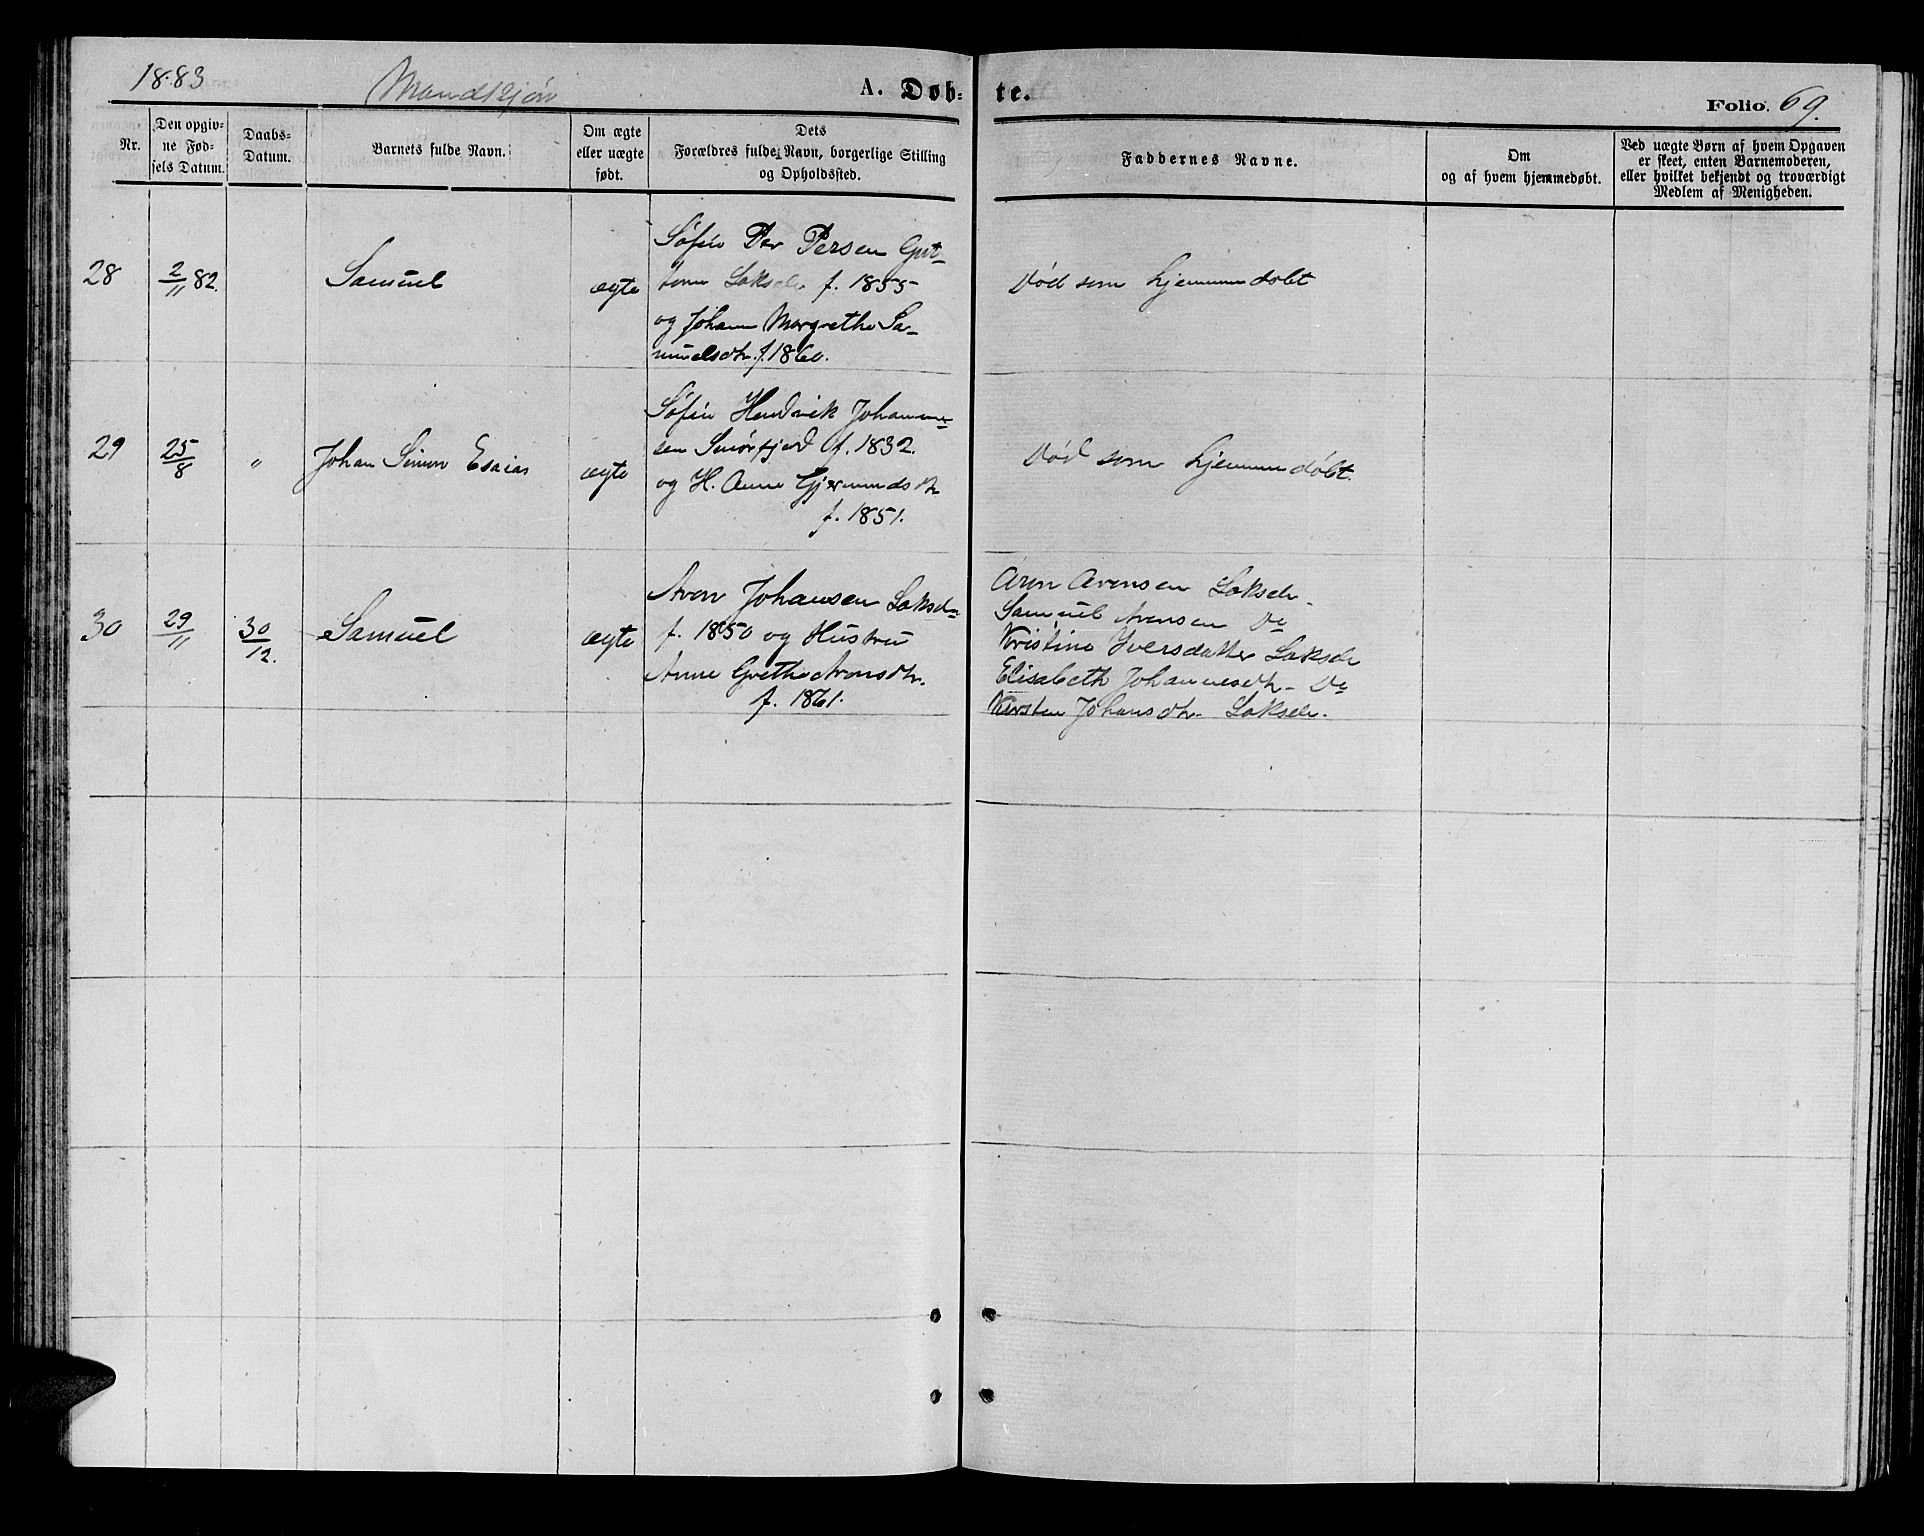 1883 Mandkjøn A. Døb- te. Folio. 69.
Nr.
Den opgiv-
ne Fød-
sels Datum.
Daabs-
Datum.
Barnets fulde Navn.
Om ægte
eller uægte
født.
Dets
Forældres fulde Navn, borgerlige Stilling
og Opholdssted.
Faddernes Navne.
Om
og af hvem hjemmedøbt.
Ved uægte Børn af hvem Opgaven
er skeet, enten Barnemoderen,
eller hvilket bekjendt og troværdigt
Medlem af Menigheden.
28 2/11 82. Samuel ægte
Søfin Per Persen
Lakselv f. 1855
og Johan Margrethe Sa-
muelsdtr. f. 1860.
Død som hjemmedøbt
29 25/8 " Johan Simon Esaias ægte
Søfin Hendrik Johanne-
sen Smørfjord f. 1832.
og H. Anne Gjermundsdtr
f. 1851.
Død som hjemmedøbt.
30 29/11 30/12. Samuel ægte
Aron Johansen Lakselv
f. 1850 og Hustru
Anne Grethe Aronsdtr.
f. 1861.
Aron Aronsen Lakselv
Samuel Aronsen Do
Kristine Iversdatter Lakselv
Elisabeth Johannesdtr- Do
Kirsten Johansdtr- Lakselv.